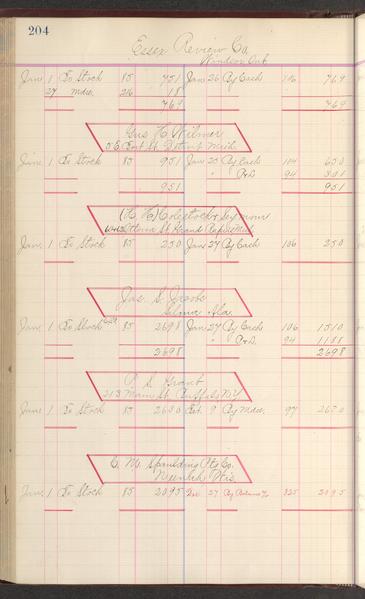 204
Essex Review Co.
Windsor Ont
Jan. 1 To Stock 85 751 Jan 26 By Cash 106 769
27 " Mdse. 216 18
769 769
Gus. C. Wilmer
Fort St. Detroit Mich.
Jan. 1 To Stock 85 951 Jan 20 By Cash 104 650
" P&L 94 301
951 951
Ottawa St. Grand Rapids Mich
Jan. 1 To Stock 85 250 Jan 27 By Cash 106 250
Jas. S. Jacobs
Selma Ala.
Jan. 1 To Stock 85 2698 Jan 27 By Cash 106 1510
" P&L 94 1188
2698 2698
P. S. Grant
213 Main St. Buffalo N.Y.
Jan. 1 To Stock 85 2650 Feb. 9 By Mdse. 97 2650
C. M. Spaulding Co.
Neenah Wis.
Jan. 1 To Stock 85 2095 Dec 27 By Balance 325 2095